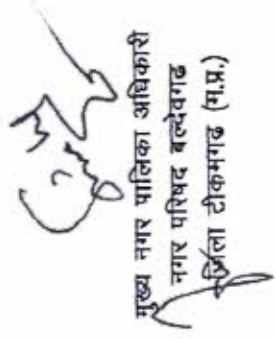 मुख्य नगर पालिका अधिकारी
नगर परिषद बल्देवगढ
जिला टीकमगढ (म.प्र.)